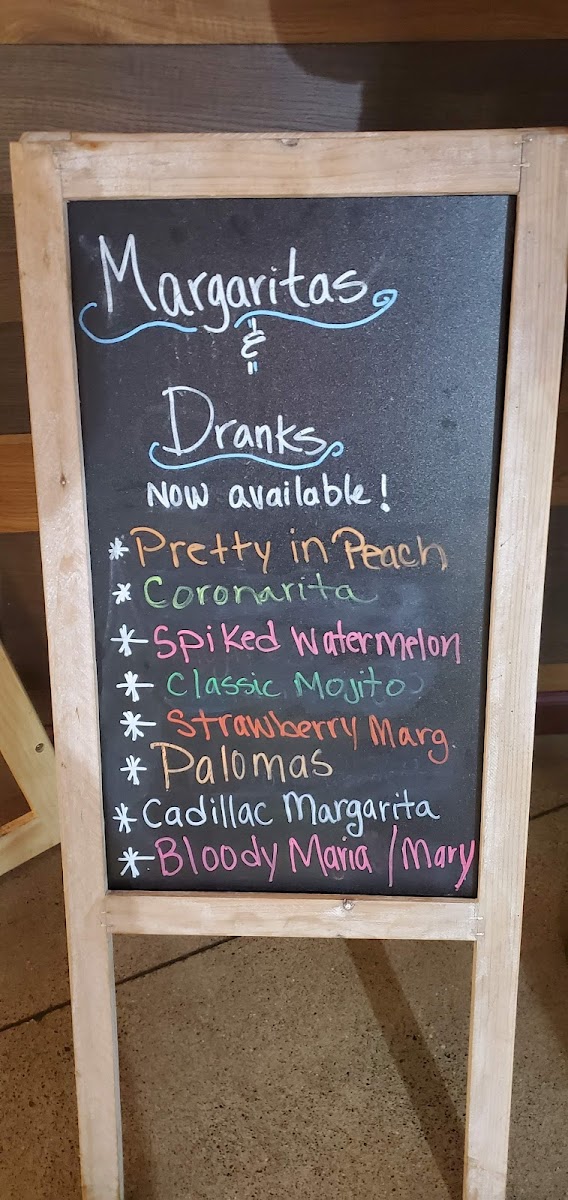 Margaritas
&
Dranks
Now available!
* Pretty in Peach
* Coronarita
* Spiked Watermelon
* Classic Mojito
* Strawberry Marg.
* Palomas
* Cadillac Margarita
* Bloody Maria / Mary